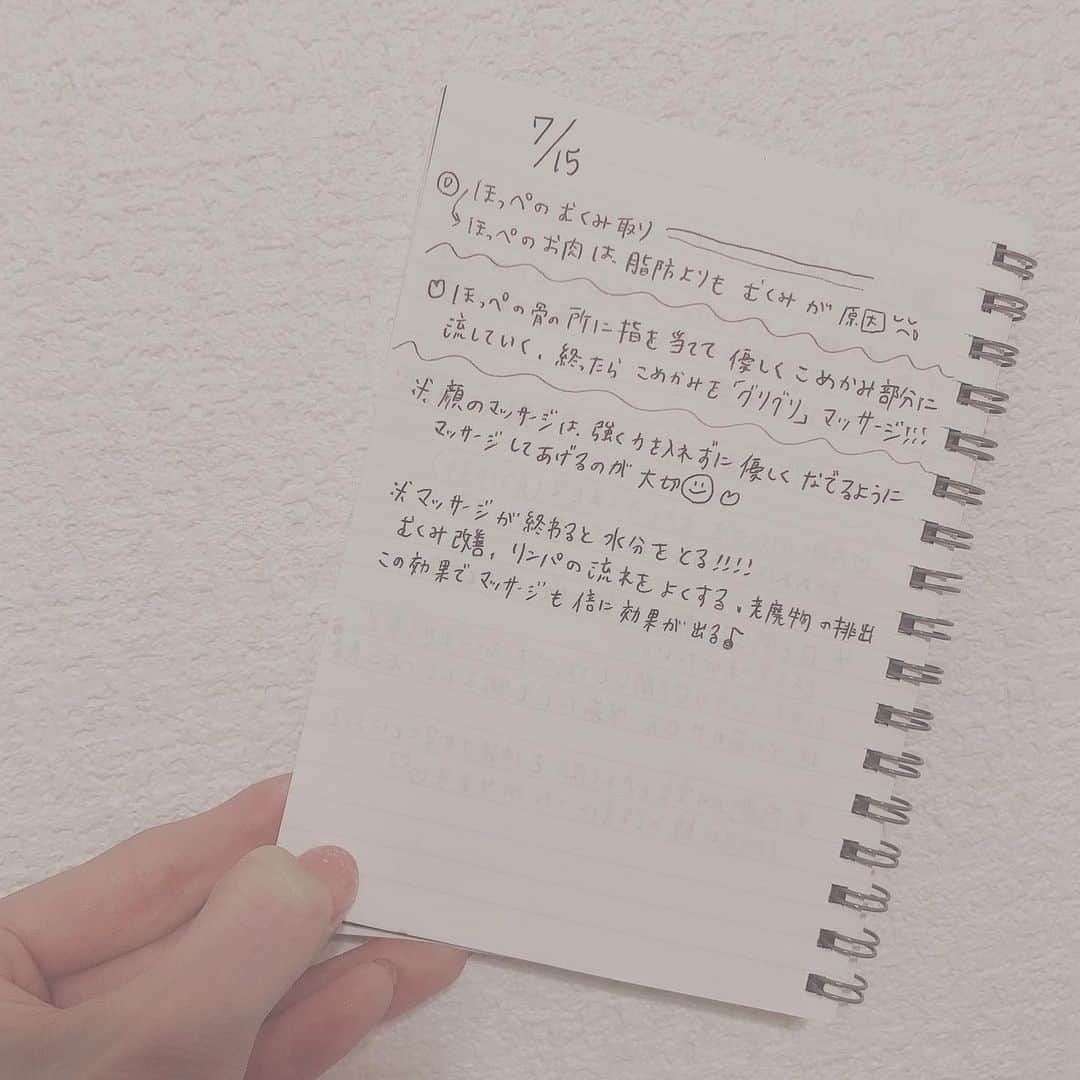 7/15
① ほっぺのむくみ取り
↳ ほっぺのお肉は、脂肪よりも むくみが 原因
♡ ほっぺの骨の所に指を当てて 優しくこめかみ部分に
流していく、終ったら こめかみを「グリグリ」マッサージ!!!
※ 顔のマッサージは、強く力を入れずに 優しく なでるように
マッサージしてあげるのが 大切☺♡
※ マッサージが 終わると 水分をとる!!!!
むくみ改善、リンパの流れをよくする、老廃物の排出
この効果でマッサージも 倍に 効果が出る♪